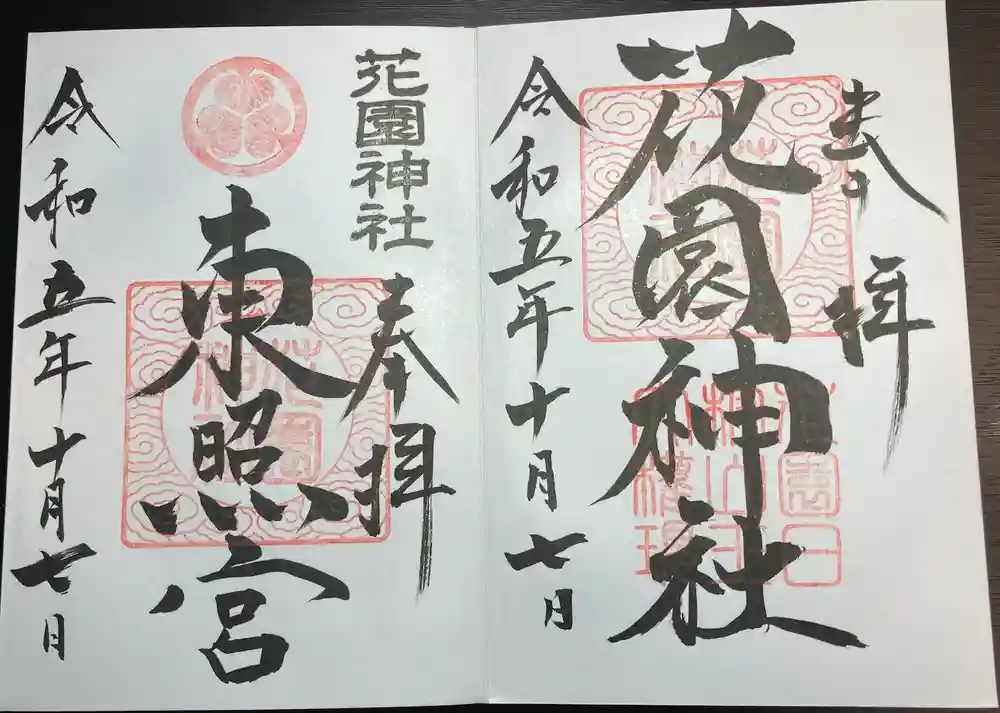 奉拝
花園神社
令和五年十月七日
花園神社
奉拝
東照宮
令和五年十月七日